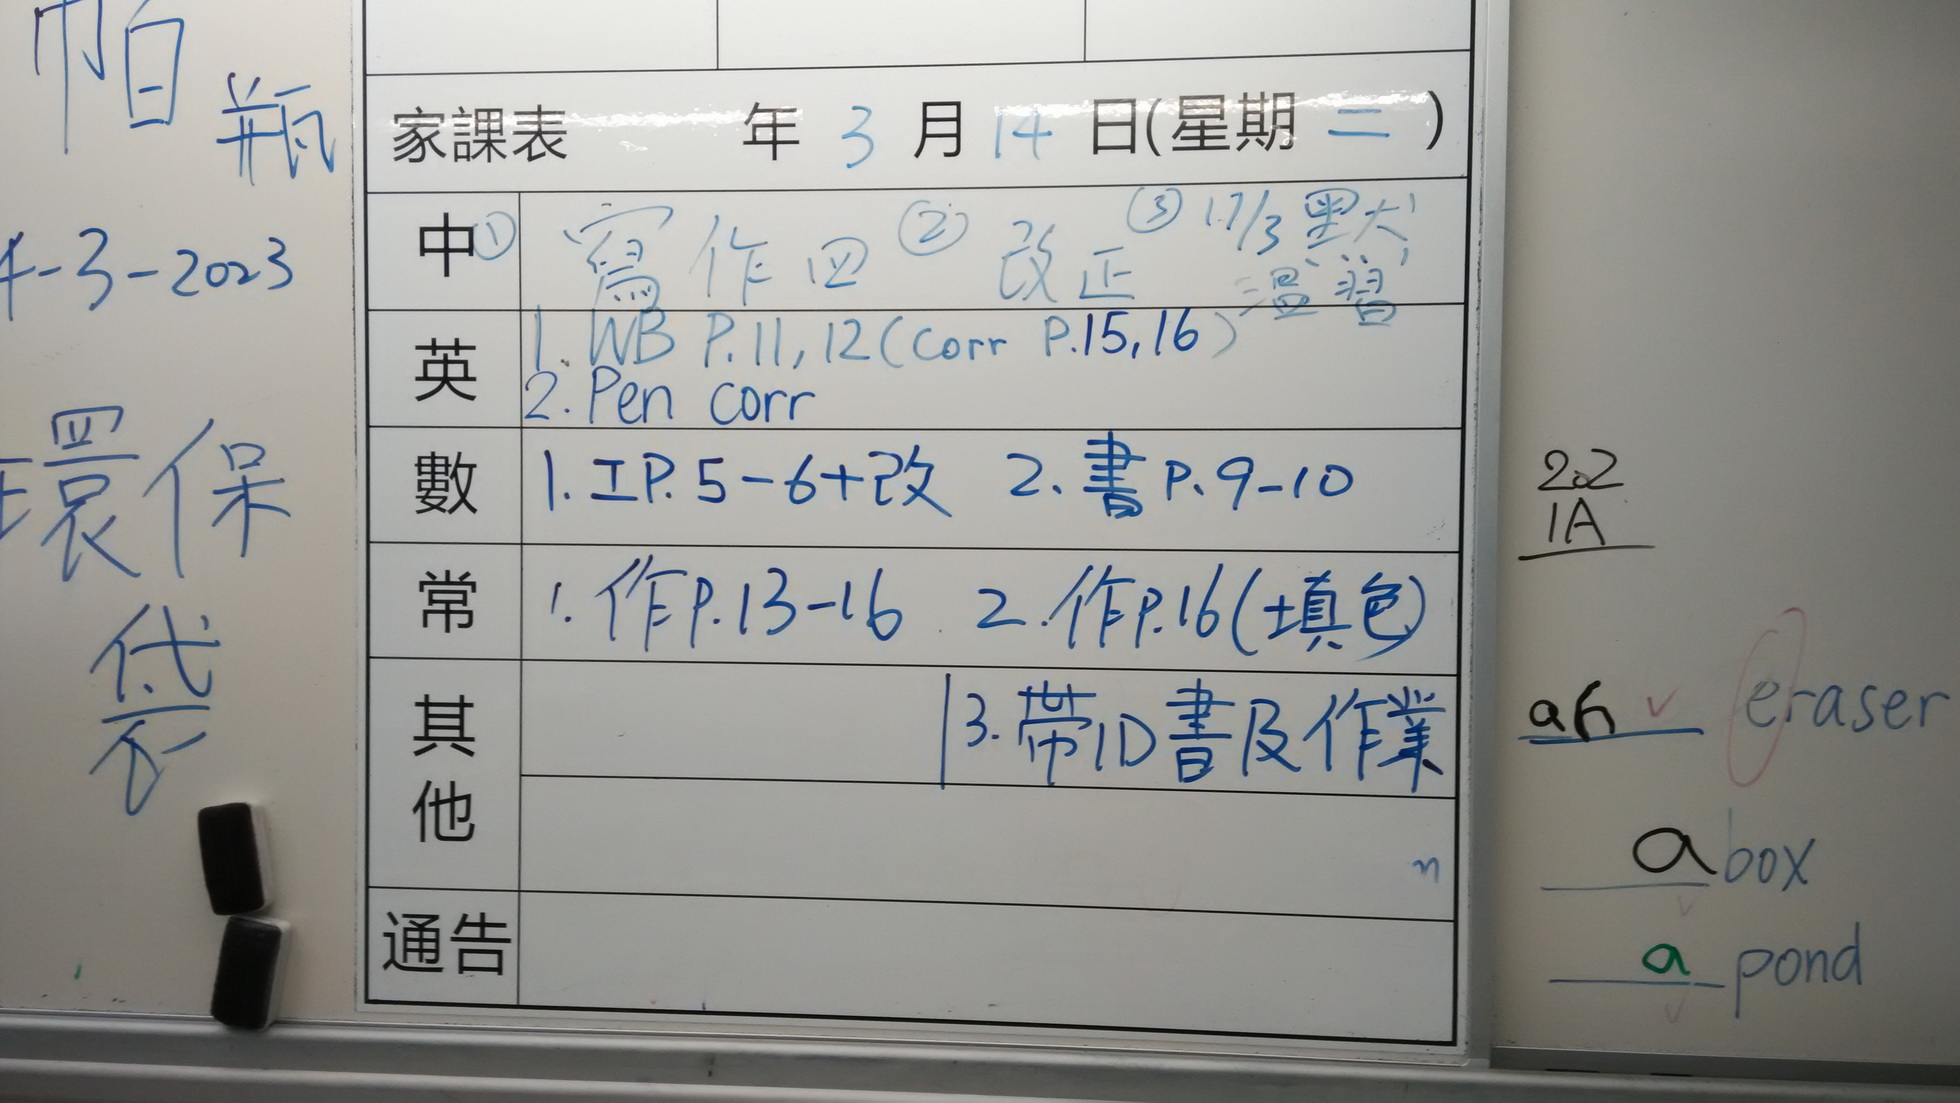 帕
瓶
4-3-2023
環保
袋
家課表 年 3 月 14 日(星期 二 )
中 ① 寫作四 ② 改正 ③ 17/3 默
溫習
英 1. WB P.11, 12 (Corr P.15, 16)
2. Pen corr
數 1. 工P.5-6+改 2. 書P.9-10
常 1. 作P.13-16 2. 作P.16(填色)
其他 3. 帶1D書及作業
n
通告
202
1A
an ✓ eraser
a box
✓
a pond
✓